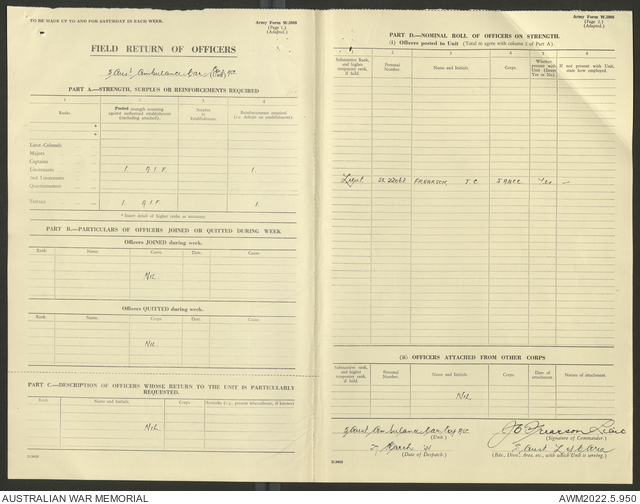 TO BE MADE UP TO AND FOR SATURDAY IN EACH WEEK.
Army Form W.3008
(Page 1.)
(Adapted.)
FIELD RETURN OF OFFICERS
2 Aust Ambulance Car Coy
(Unit)
PART A.—STRENGTH, SURPLUS OR REINFORCEMENTS REQUIRED
1
2
3
4
Ranks.
Posted strength counting against authorised establishment (including attached).
Surplus to Establishment.
Reinforcements required (i.e. deficits on establishment).
*
*
Lieut.-Colonels
Majors
Captains
Lieutenants 1 1
2nd Lieutenants
Quartermasters
TOTALS 1 1
* Insert detail of higher ranks as necessary.
PART B.—PARTICULARS OF OFFICERS JOINED OR QUITTED DURING WEEK
Officers JOINED during week.
Rank. Name. Corps. Date. Cause.
Nil
Officers QUITTED during week.
Rank. Name. Corps. Date. Cause.
Nil
PART C.—DESCRIPTION OF OFFICERS WHOSE RETURN TO THE UNIT IS PARTICULARLY REQUESTED.
Rank. Name and Initials. Corps. Remarks (i.e., present whereabouts, if known)
Nil
Army Form W.3008
(Page 2.)
(Adapted.)
PART D.—NOMINAL ROLL OF OFFICERS ON STRENGTH.
(i) Officers posted to Unit (Total to agree with column 2 of Part A).
1
2
3
4
5
6
Substantive Rank, and higher temporary rank, if held.
Personal Number.
Name and Initials.
Corps.
Whether present with Unit (Insert Yes or No).
If not present with Unit, state how employed.
Lieut FREARSON J.C Yes —
(ii) OFFICERS ATTACHED FROM OTHER CORPS
Substantive Rank, and higher temporary rank, if held.
Personal Number.
Name and Initials.
Corps.
Date of attachment.
Nature of attachment.
Nil
2 Aust Ambulance Car Coy
(Unit.)
March 41
(Date of Despatch.)
J C Frearson Lieut
(Signature of Commander.)
(Bde., Divn., Area, etc., with which Unit is serving.)
AUSTRALIAN WAR MEMORIAL
AWM2022.5.950